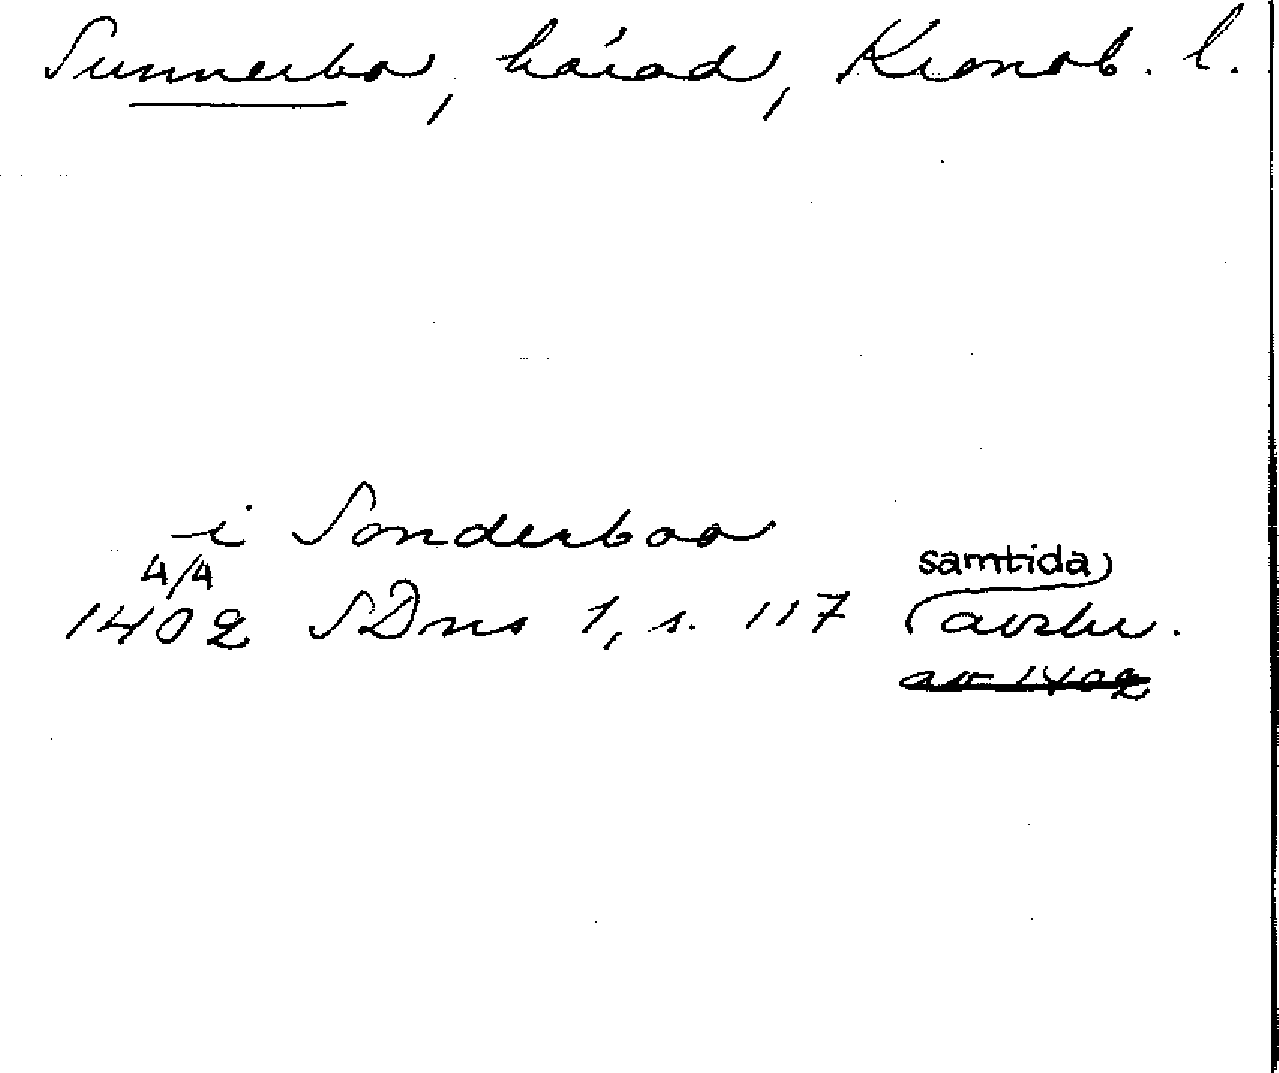 Sunnerbo, härad, Kronob. l.
i Sonderboo
4/4
1402 SDns 1, s. 117 samtida avskr.
av 1402